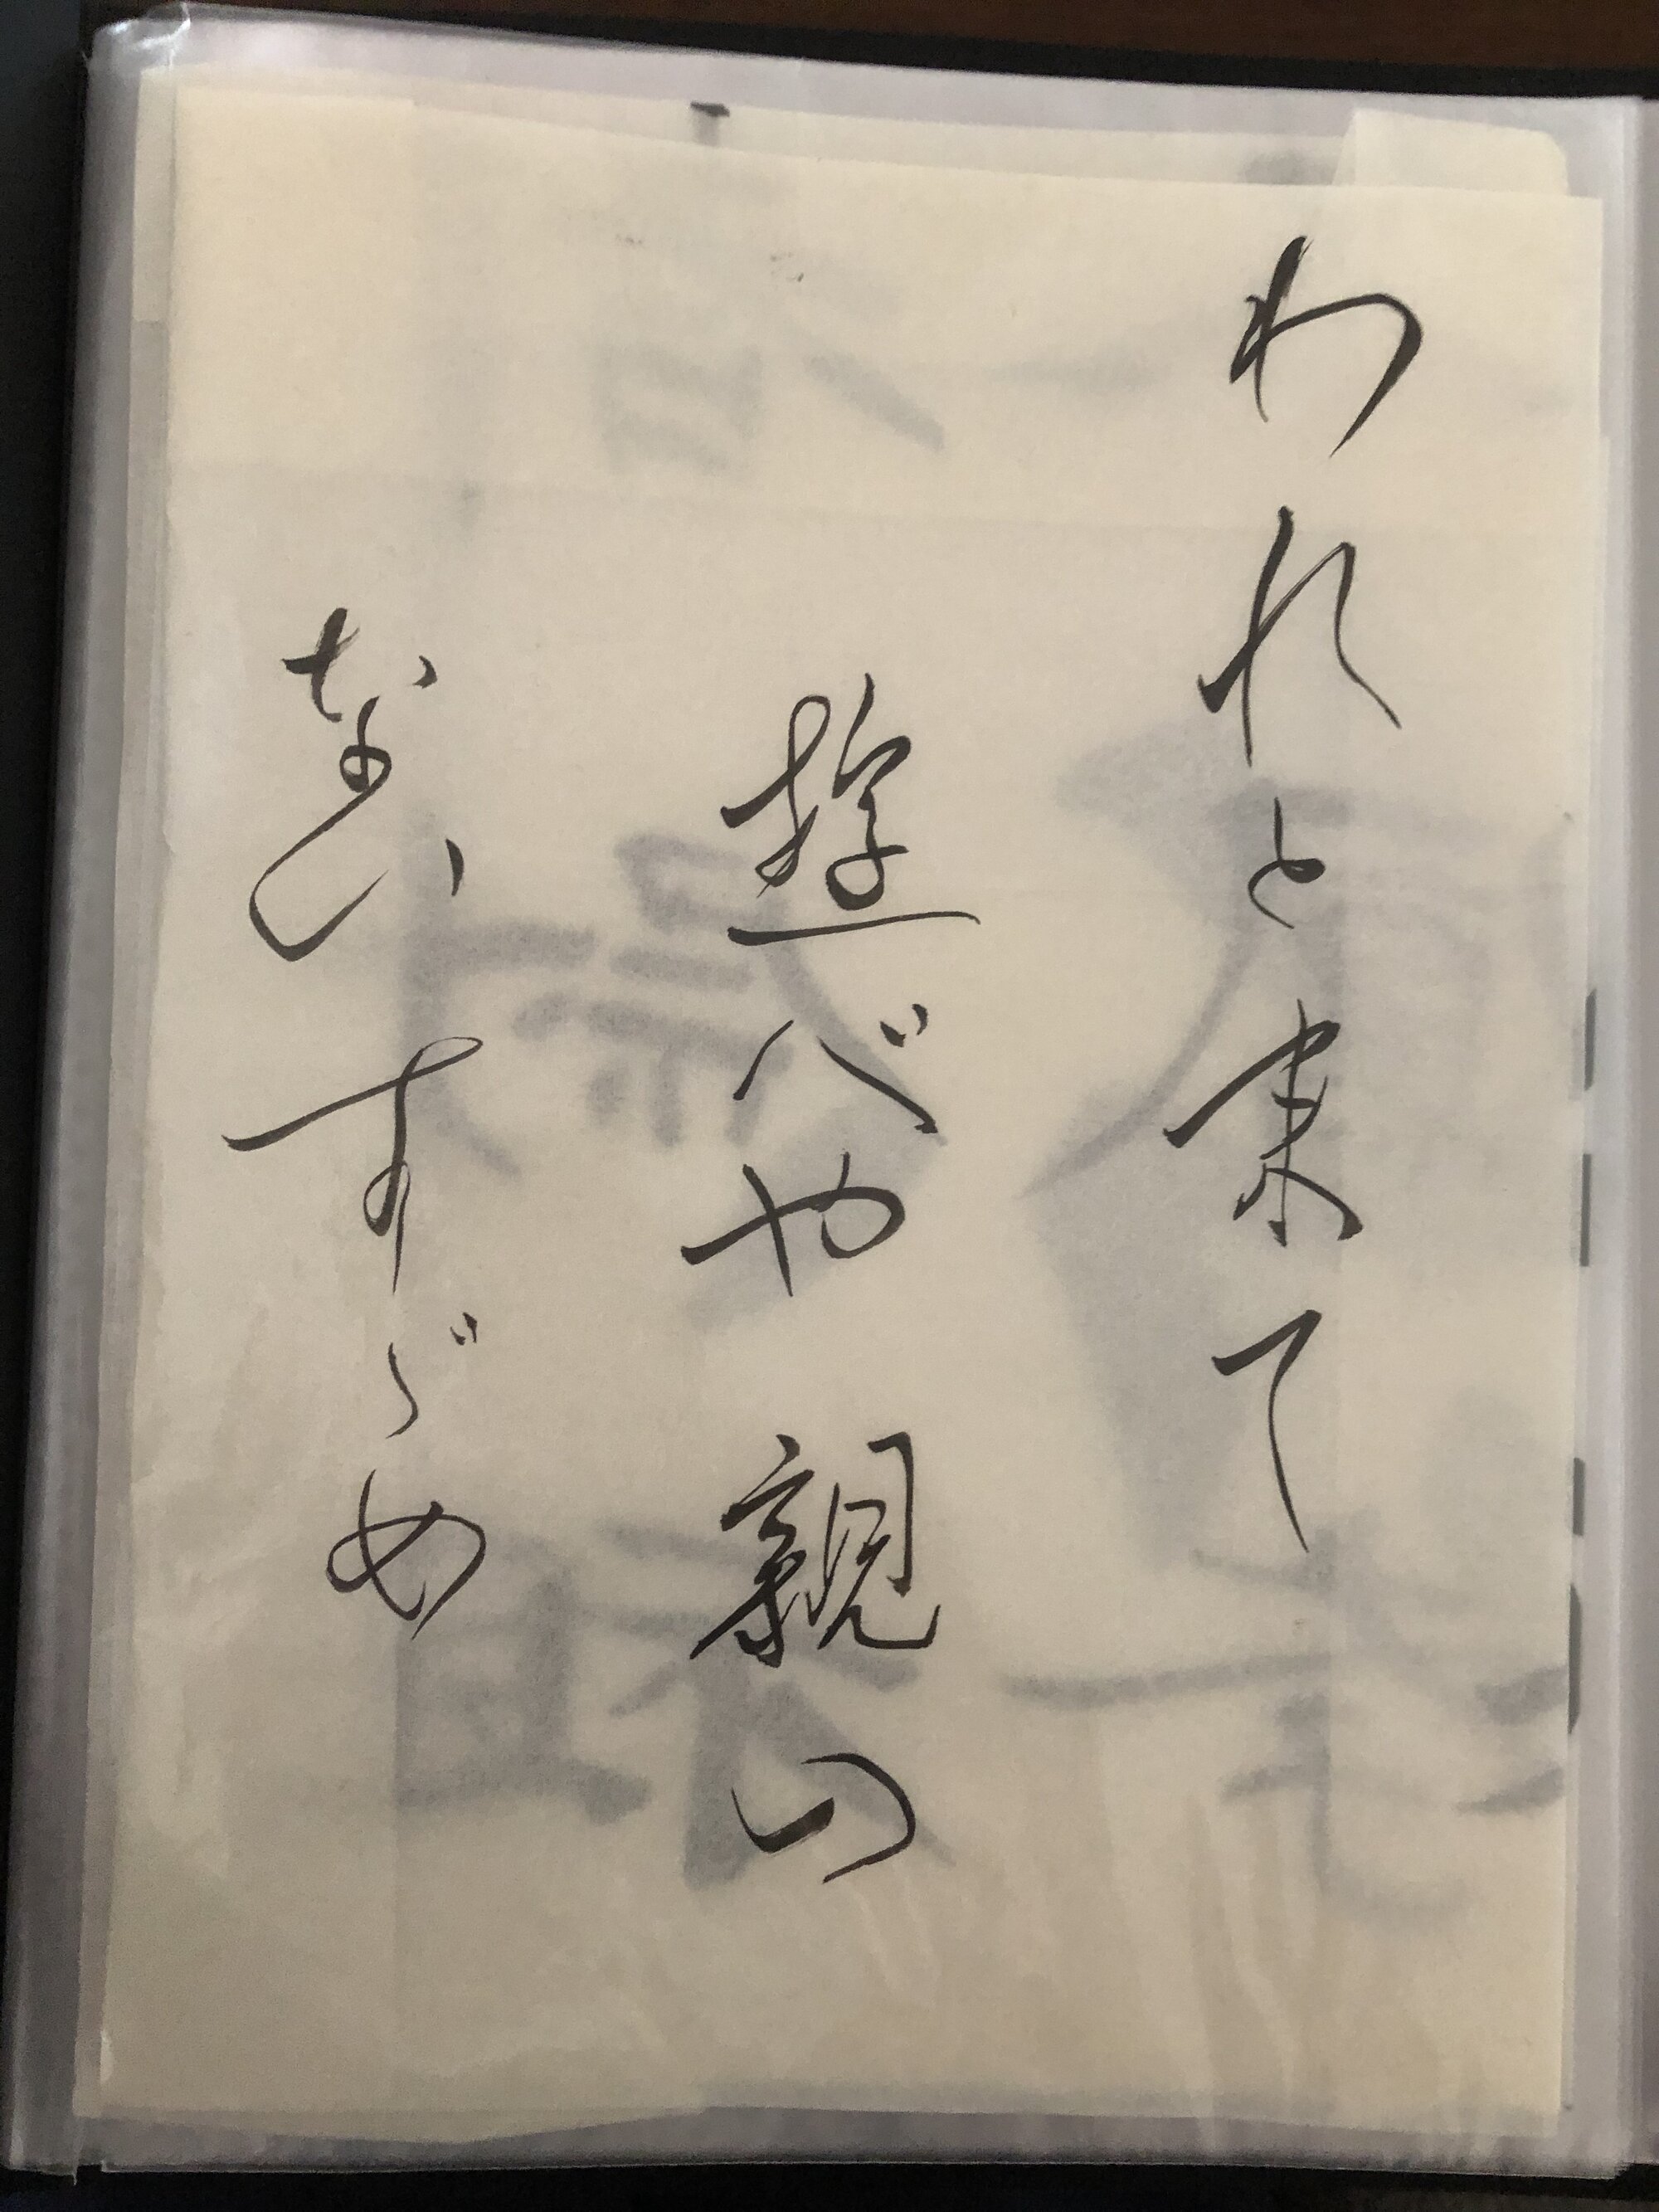 われと来て
遊べや親の
ないすゞめ